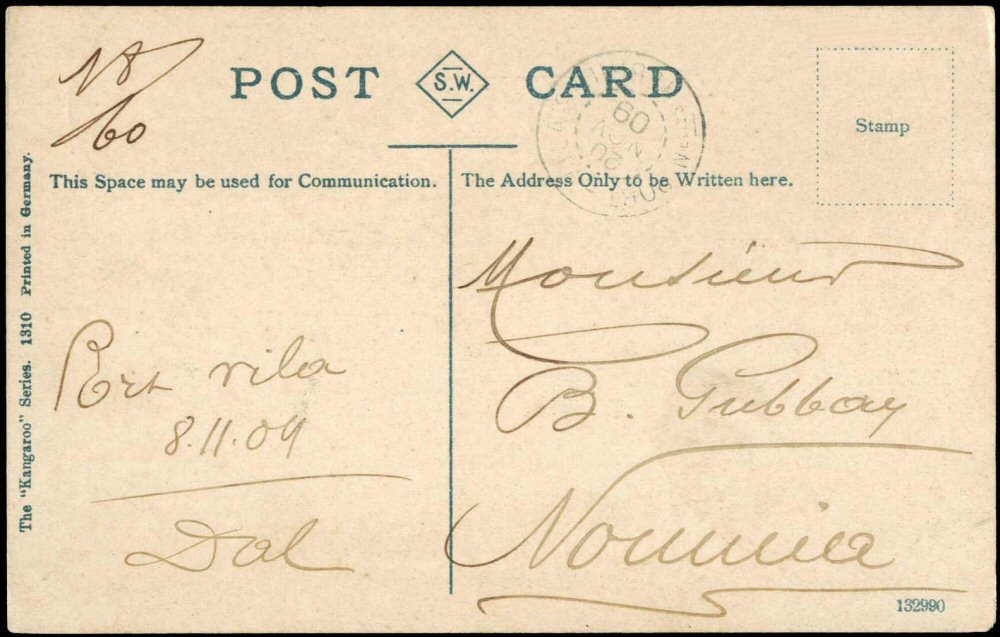 18
60
POST S.W. CARD
Stamp
This Space may be used for Communication.
The Address Only to be Written here.
Port vila
8.11.09
Dal
Monsieur
B. Gubbay
Noumea
The "Kangaroo" Series. 1310 Printed in Germany.
132990